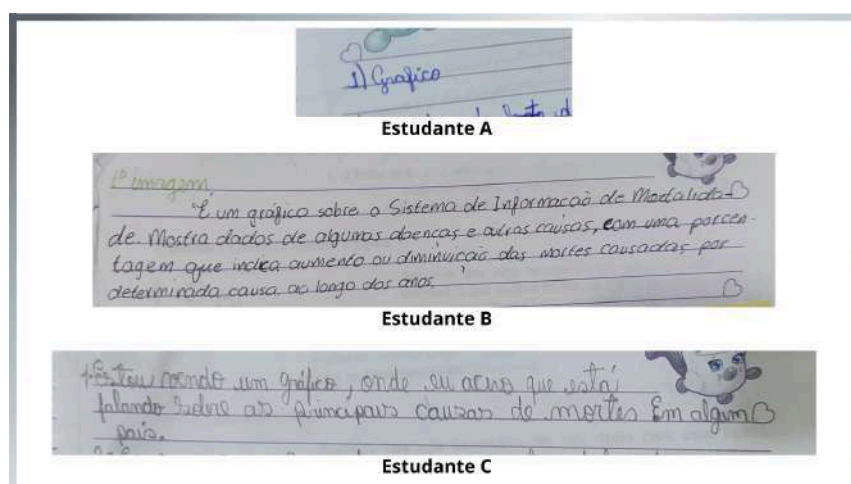 1) Grafico
Estudante A
1º imagem
É um gráfico sobre o Sistema de Informação de Mortalida-
de. Mostra dados de algumas doenças e outras causas, com uma porcen-
tagem que indica aumento ou diminuição das mortes causadas por
determinada causa ao longo dos anos.
Estudante B
1- Estou vendo um gráfico, onde eu acho que está
falando sobre as principais causas de mortes Em algum
país.
Estudante C